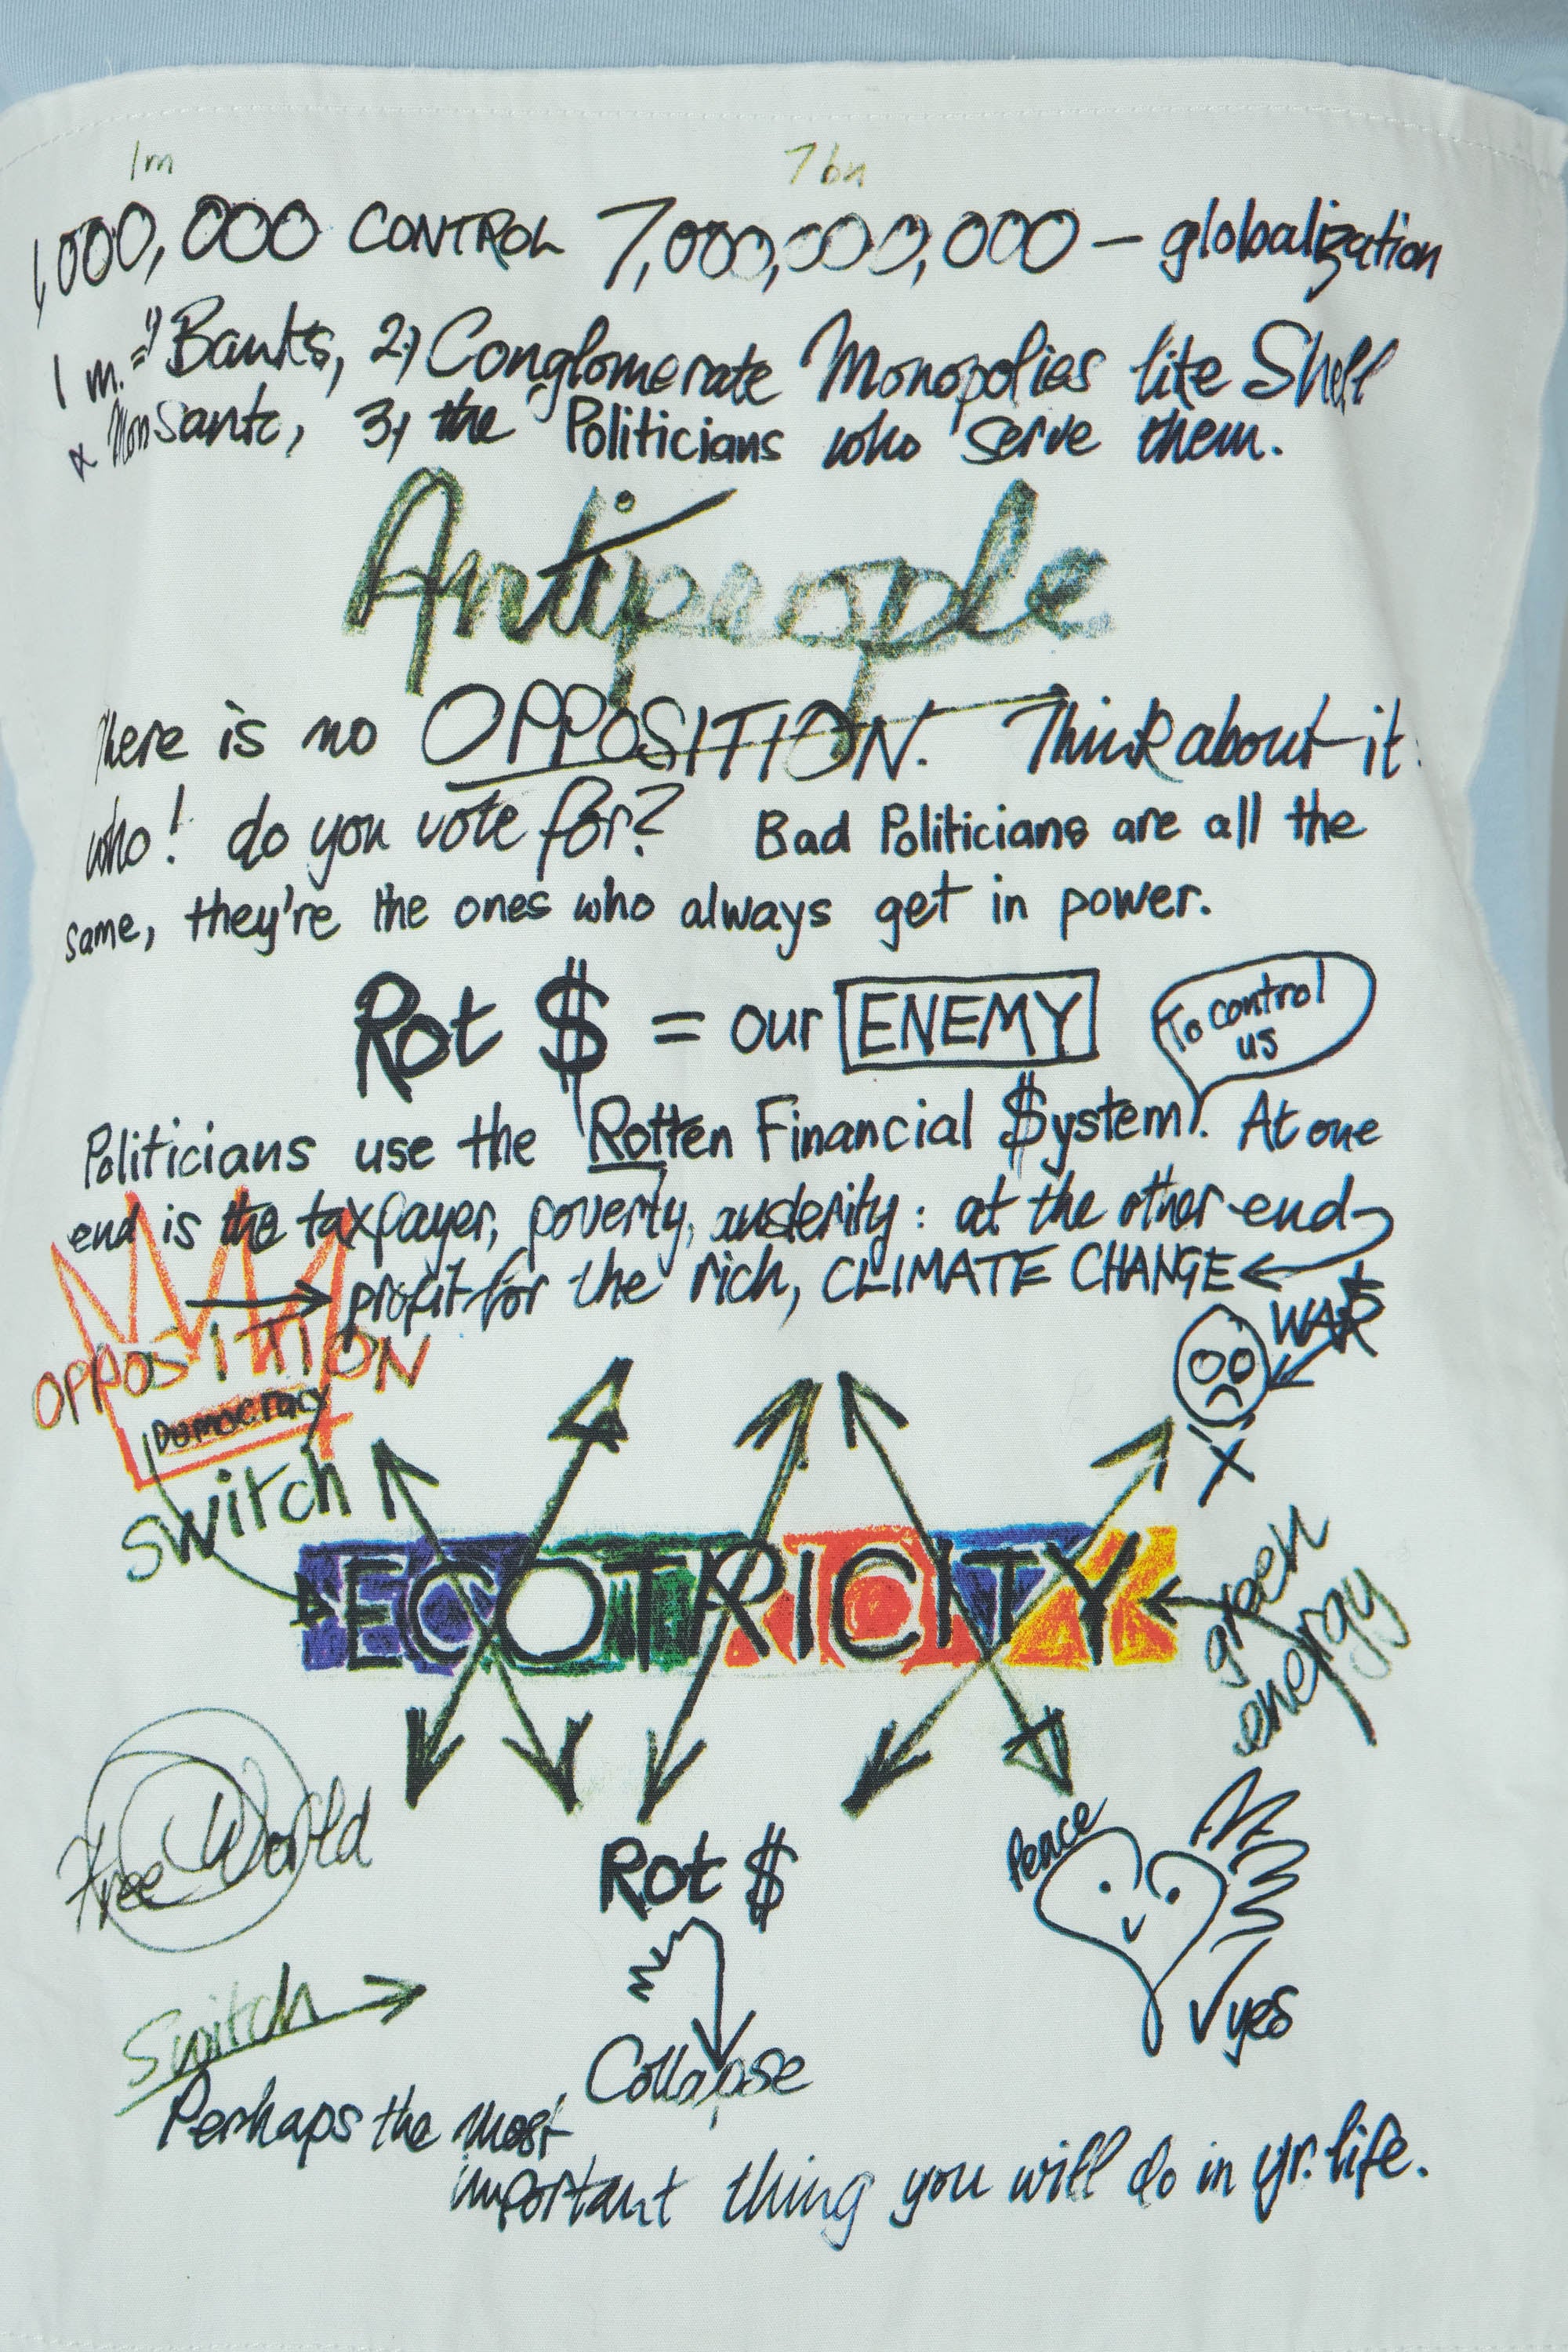 1m 7bn
1,000,000 CONTROL 7,000,000,000 — globalization
1 m. = 1) Banks, 2) Conglomerate Monopolies like Shell
& MonSanto, 3) the Politicians who serve them.
Antipeople
there is no OPPOSITION. Think about it:
who! do you vote for? Bad Politicians are all the
same, they're the ones who always get in power.
Rot $ = our ENEMY
To control
us
Politicians use the Rotten Financial $ystem. At one
end is the taxpayer, poverty, austerity: at the other end
profit for the rich, CLIMATE CHANGE
+
WAR
OPPOSITION
Democracy
Switch
X
ECOTRICITY
green
energy
Free World
Rot $
Peace
Switch
yes
Collapse
Perhaps the most
important thing you will do in yr. life.